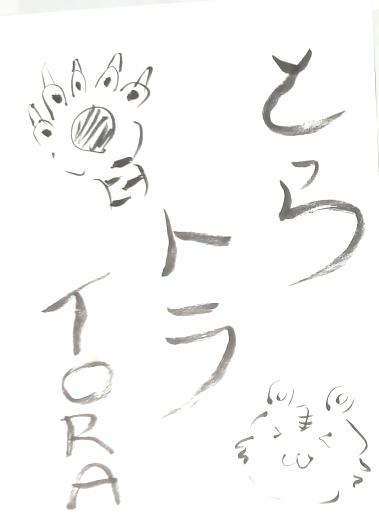 とら
トラ
TORA